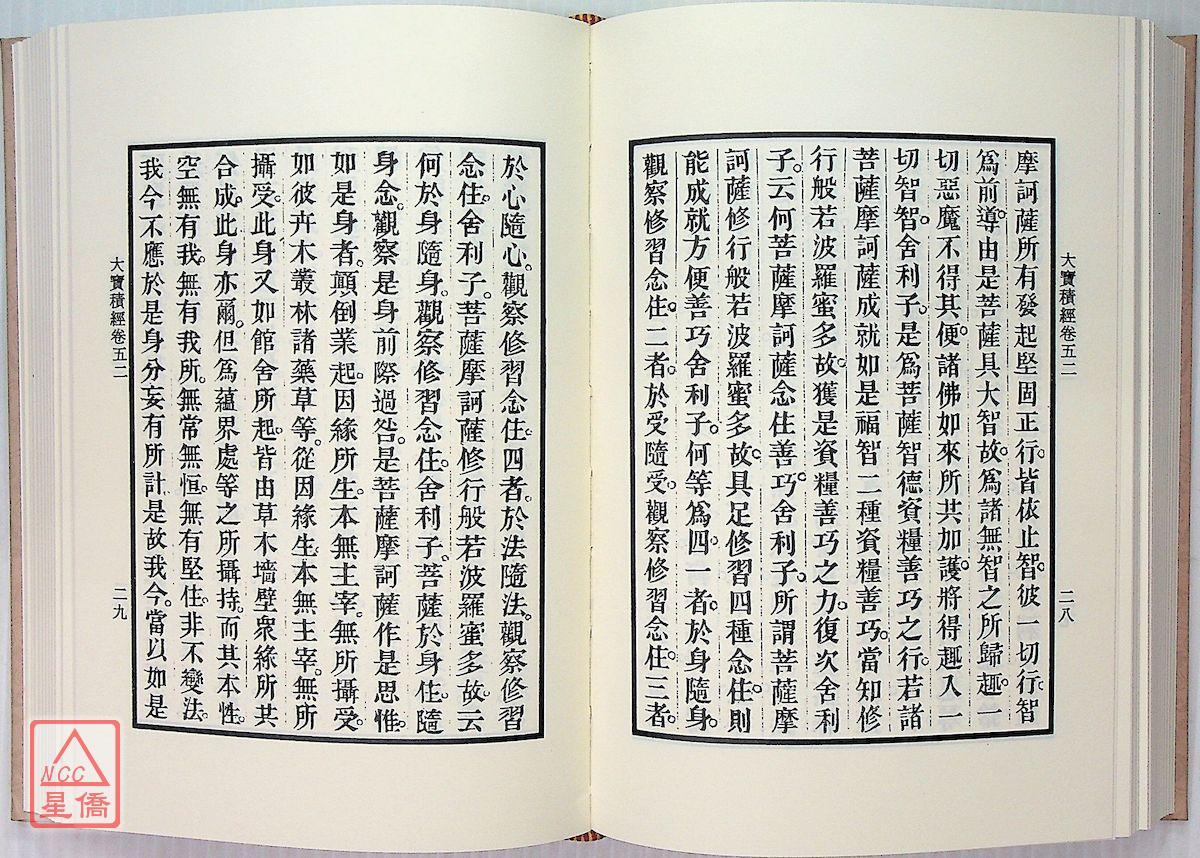 大寶積經卷五二
二八
摩訶薩所有發起堅固正行。皆依止智。彼一切行。智
爲前導。由是菩薩具大智故。爲諸無智之所歸趣。一
切惡魔不得其便。諸佛如來所共加護。將得趣入一
切智智。舍利子。是爲菩薩智德資糧善巧之行。若諸
菩薩摩訶薩成就如是福智二種資糧善巧。當知修
行般若波羅蜜多故。獲是資糧善巧之力。復次舍利
子。云何菩薩摩訶薩念住善巧。舍利子。所謂菩薩摩
訶薩修行般若波羅蜜多故。具足修習四種念住。則
能成就方便善巧。舍利子。何等爲四。一者。於身隨身。
觀察修習念住。二者。於受隨受。觀察修習念住。三者。
於心隨心。觀察修習念住。四者。於法隨法。觀察修習
念住。舍利子。菩薩摩訶薩修行般若波羅蜜多故。云
何於身隨身。觀察修習念住。舍利子。菩薩於身住。隨
身念。觀察是身前際過咎。是菩薩摩訶薩作是思惟。
如是身者。顛倒業起。因緣所生。本無主宰。無所攝受。
如彼卉木叢林諸藥草等。從因緣生。本無主宰。無所
攝受。此身又如館舍所起。皆由草木墻壁衆緣所共
合成。此身亦爾。但爲蘊界處等之所攝持。而其本性。
空無有我。無有我所。無常無恒。無有堅住。非不變法。
我今不應於是身分妄有所計。是故我今。當以如是
大寶積經卷五二
二九
NCC
星僑